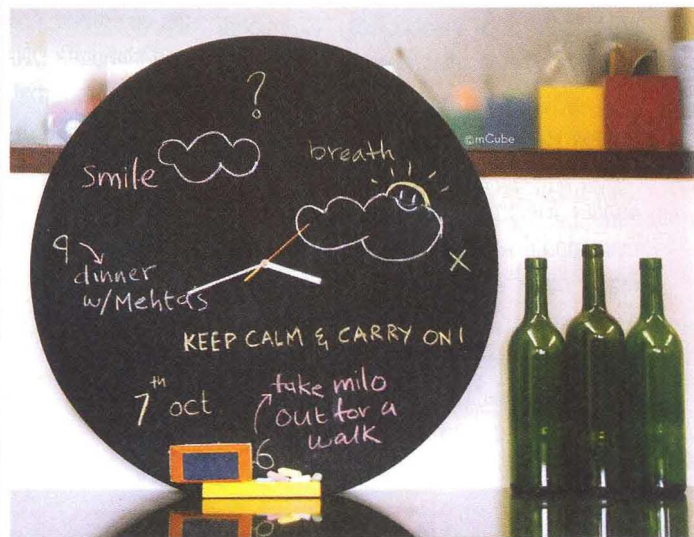 ?
©mCube
breath
smile
9
dinner
w/Mehtas
x
KEEP CALM & CARRY ON!
7th oct
take milo
out for a
walk
6